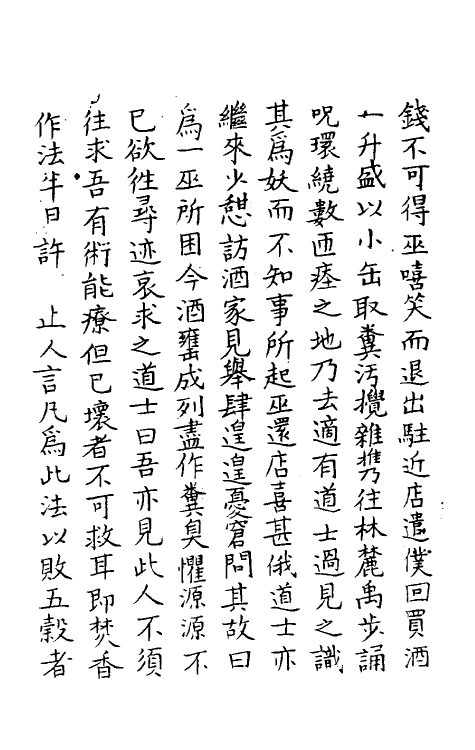 錢不可得巫嘻笑而退出駐近店遣僕回買酒
一升盛以小缶取糞汚攪雜攜往林麓禹步誦
呪環繞數匝瘞之地乃去適有道士過見之識
其爲妖而不知事所起巫還店喜甚俄道士亦
繼來少憇訪酒家見舉肆遑遑憂窘問其故曰
爲一巫所困今酒罋成列盡作糞臭懼源源不
已欲徃尋迹哀求之道士曰吾亦見此人不須
往求吾有術能療但已壞者不可救耳即焚香
作法半日許 止人言凡爲此法以敗五穀者